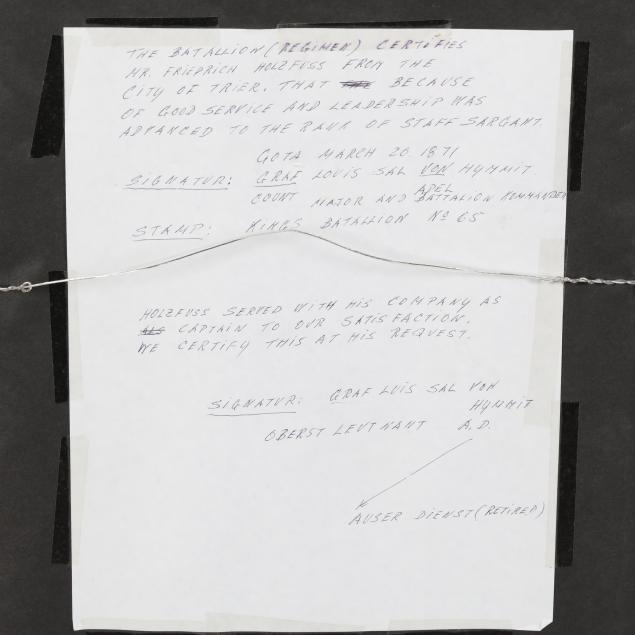 THE BATALLION (REGIMEN) CERTIFIES
MR. FRIEDRICH HOLZFUSS FROM THE
CITY OF TRIER. THAT BECAUSE
OF GOOD SERVICE AND LEADERSHIP WAS
ADVANCED TO THE RANK OF STAFF SARGANT.
GOTA MARCH 20. 1871
SIGNATUR: GRAF LOUIS SAL VON HYMMIT
ADEL
COUNT MAJOR AND BATTALION KOMMANDER
STAMP: KINGS BATALLION No 65
HOLZFUSS SERVED WITH HIS COMPANY AS
ALS CAPTAIN TO OUR SATISFACTION.
WE CERTIFY THIS AT HIS REQUEST.
SIGNATUR: GRAF LUIS SAL VON
HYMMIT
OBERST LEUTNANT A.D.
AUSER DIENST (RETIRED)